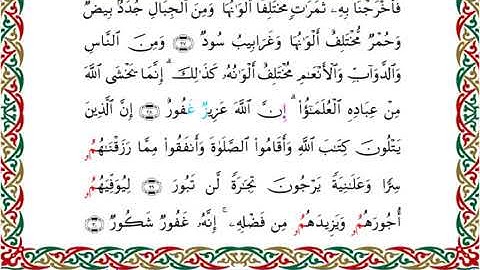 فَأَخْرَجْنَا بِهِۦ ثَمَرَٰتٖ مُّخْتَلِفًا أَلْوَٰنُهَا وَمِنَ ٱلْجِبَالِ جُدَدُۢ بِيضٌ
وَحُمْرٌ مُّخْتَلِفٌ أَلْوَٰنُهَا وَغَرَابِيبُ سُودٌ ۝٢٧ وَمِنَ ٱلنَّاسِ
وَٱلدَّوَآبِّ وَٱلْأَنْعَٰمِ مُخْتَلِفٌ أَلْوَٰنُهُۥ كَذَٰلِكَ ۗ إِنَّمَا يَخْشَى ٱللَّهَ
مِنْ عِبَادِهِ ٱلْعُلَمَٰٓؤُاْ ۗ إِنَّ ٱللَّهَ عَزِيزٌ غَفُورٌ ۝٢٨ إِنَّ ٱلَّذِينَ
يَتْلُونَ كِتَٰبَ ٱللَّهِ وَأَقَامُواْ ٱلصَّلَوٰةَ وَأَنفَقُواْ مِمَّا رَزَقْنَٰهُمُۥ
سِرًّا وَعَلَانِيَةً يَرْجُونَ تِجَٰرَةً لَّن تَبُورَ ۝٢٩ لِيُوَفِّيَهُمُۥ
أُجُورَهُمُۥ وَيَزِيدَهُمُۥ مِن فَضْلِهِۦٓ ۚ إِنَّهُۥ غَفُورٌ شَكُورٌ ۝٣٠